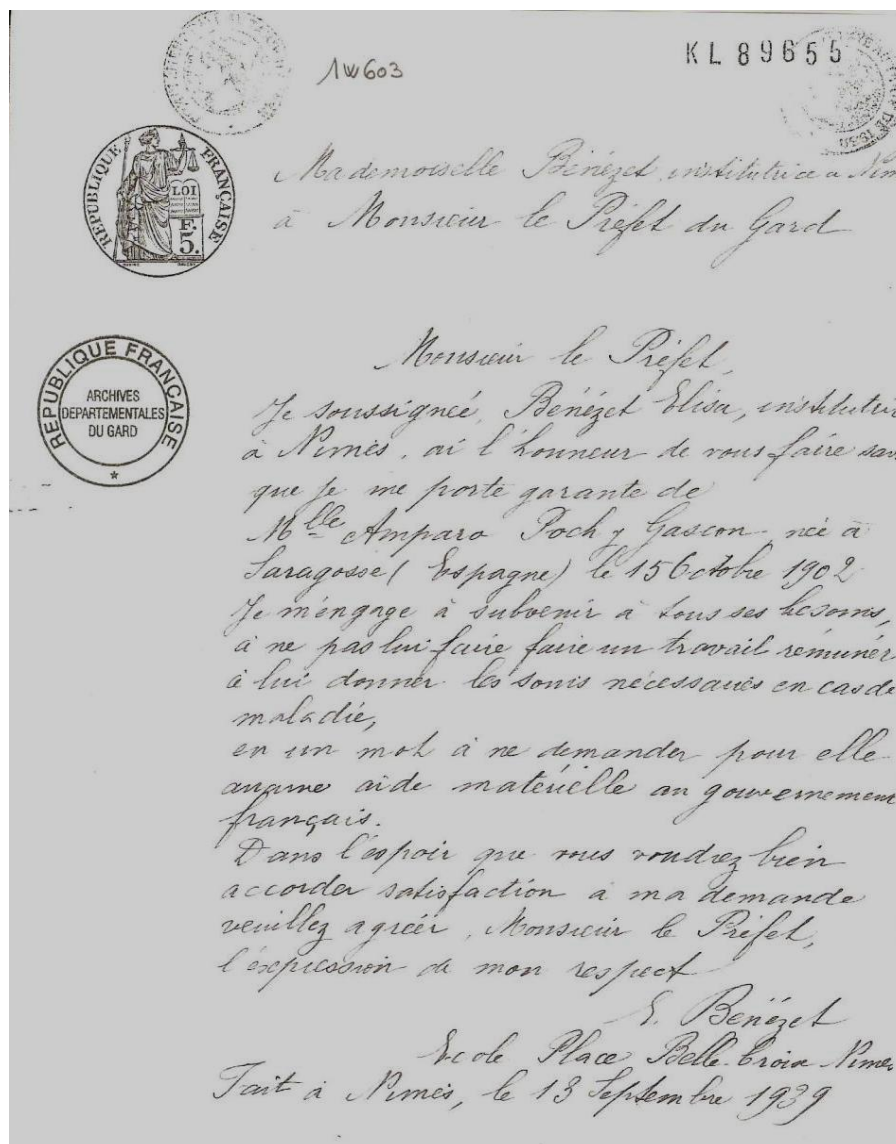 1W603
KL 89655
RÉPUBLIQUE FRANÇAISE
LOI
F.
5.
Mademoiselle Bénézet institutrice a Nim
à Monsieur le Préfet du Gard
RÉPUBLIQUE FRANÇAISE
ARCHIVES
DEPARTEMENTALES
DU GARD
Monsieur le Préfet,
Je soussigneé, Bénézet Elisa, institutric
à Nimes, ai l'honneur de vous faire sav
que je me porte garante de
Mlle Amparo Poch y Gascon née à
Saragosse (Espagne) le 15 Octobre 1902
Je m'engage à subvenir à tous ses besoins,
à ne pas lui faire faire un travail rémunér
à lui donner les soins nécessaires en cas de
maladie,
en un mot à ne demander pour elle
aucune aide matérielle au gouvernement
français.
Dans l'espoir que vous voudrez bien
accorder satisfaction à ma demande
veuillez agréer, Monsieur le Préfet,
l'expression de mon respect
E. Bénézet
Ecole Place Belle-Croix Nimes
Fait à Nimes, le 13 Septembre 1939